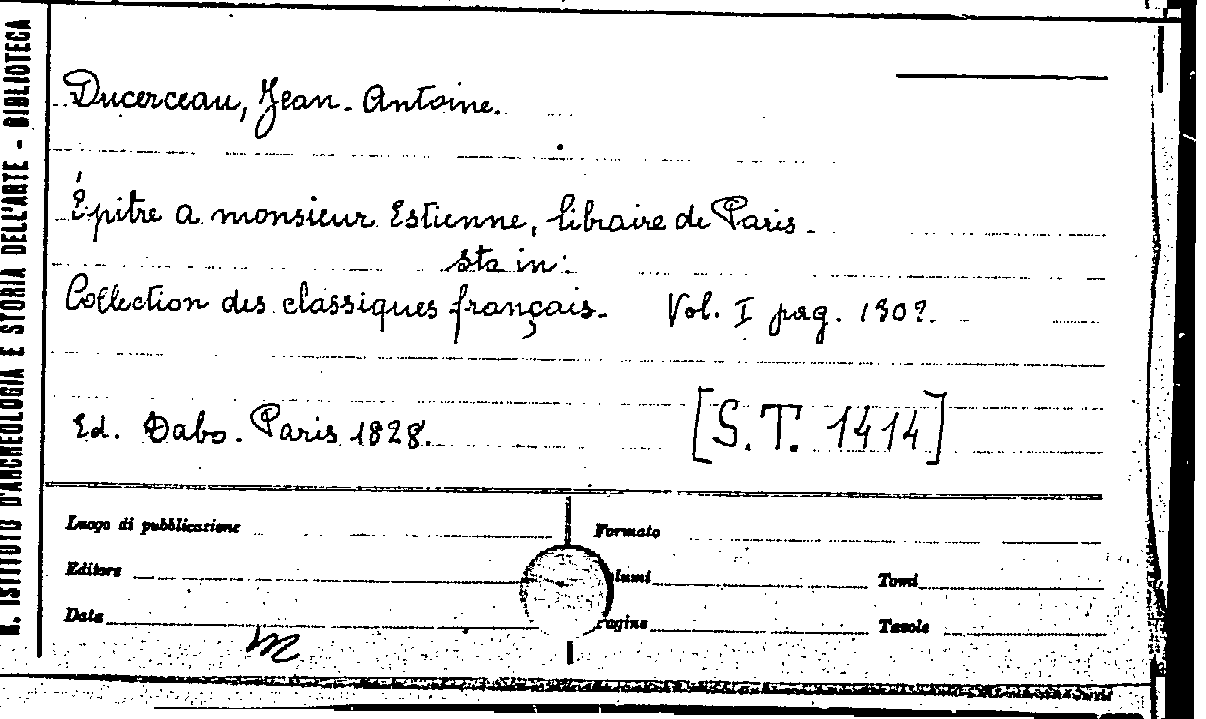 R. ISTITUTO D'ARCHEOLOGIA E STORIA DELL'ARTE - BIBLIOTECA
Ducerceau, Jean-Antoine.
Épitre a monsieur Estienne, libraire de Paris.
sta in:
Collection des classiques français. Vol. I pag. 1302.
Ed. Dabo. Paris 1828. [S.T. 1414]
Luogo di pubblicazione Formato
Editore lumi Tomi
Data agine Tavole
m